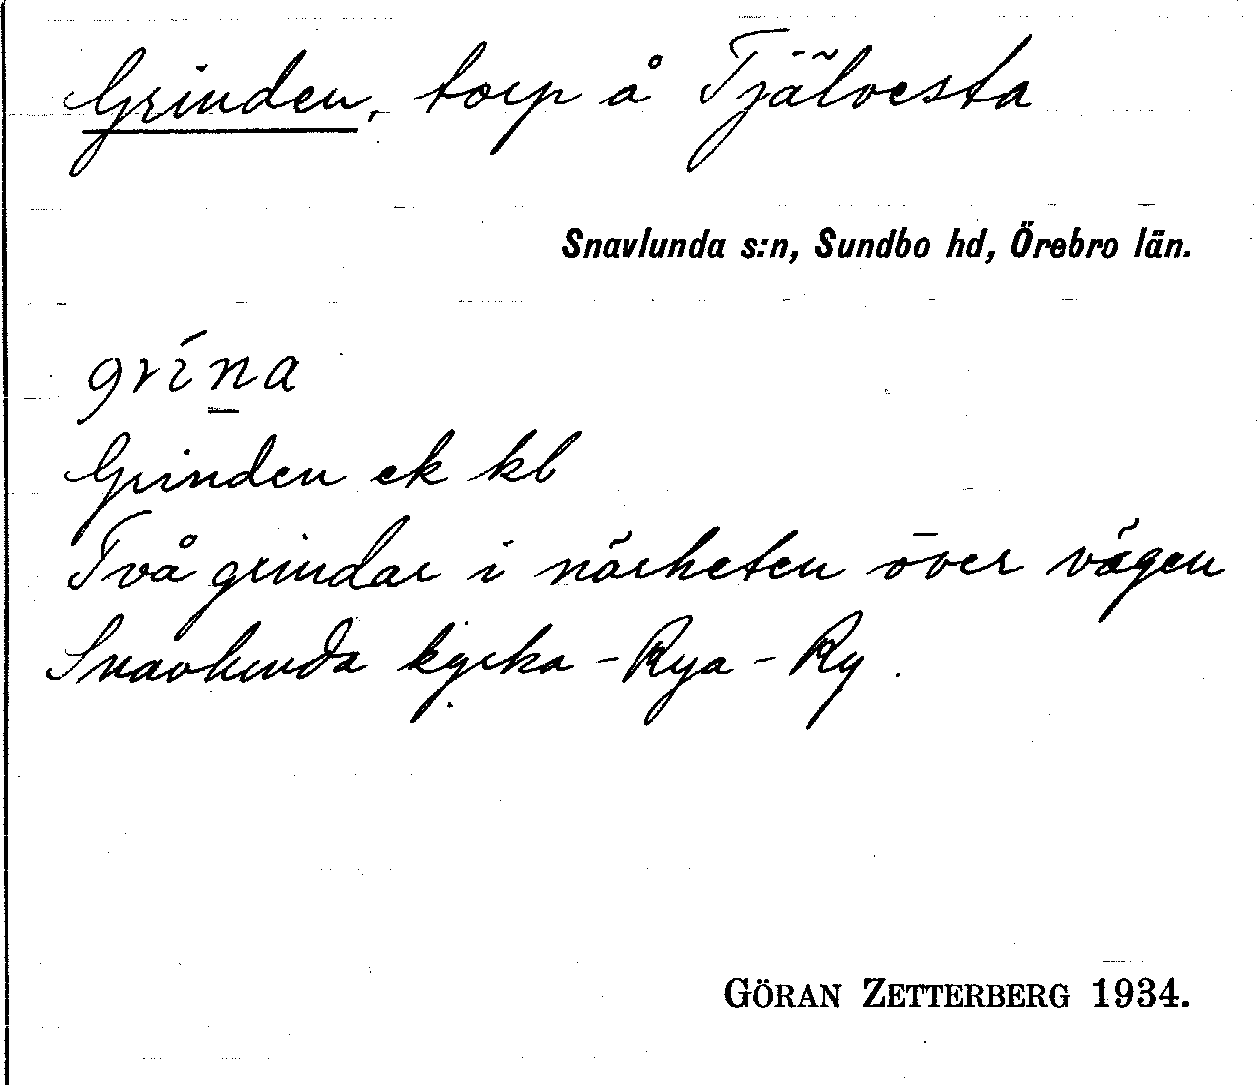 Grinden, torp å Tjälvesta
Snavlunda s:n, Sundbo hd, Örebro län.
grína
Grinden ek kb
Två grindar i närheten över vägen
Snavlunda kyrka - Rya - Ry.
GÖRAN ZETTERBERG 1934.